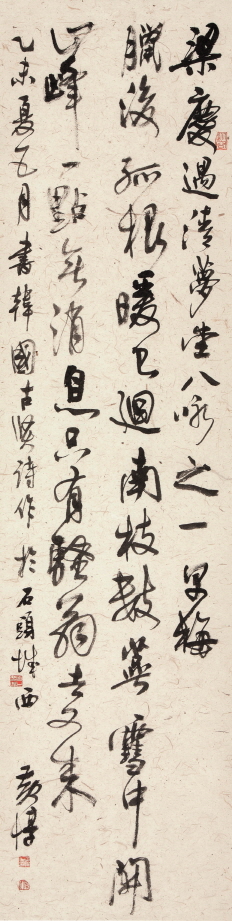 梁慶遇清夢堂八咏之一 早梅
臘後孤根暖已迴南枝數萼雪中開
山峰一點無消息只有騷翁去又來
乙未夏五月書韓國古賢詩作於石頭城西 黃惇